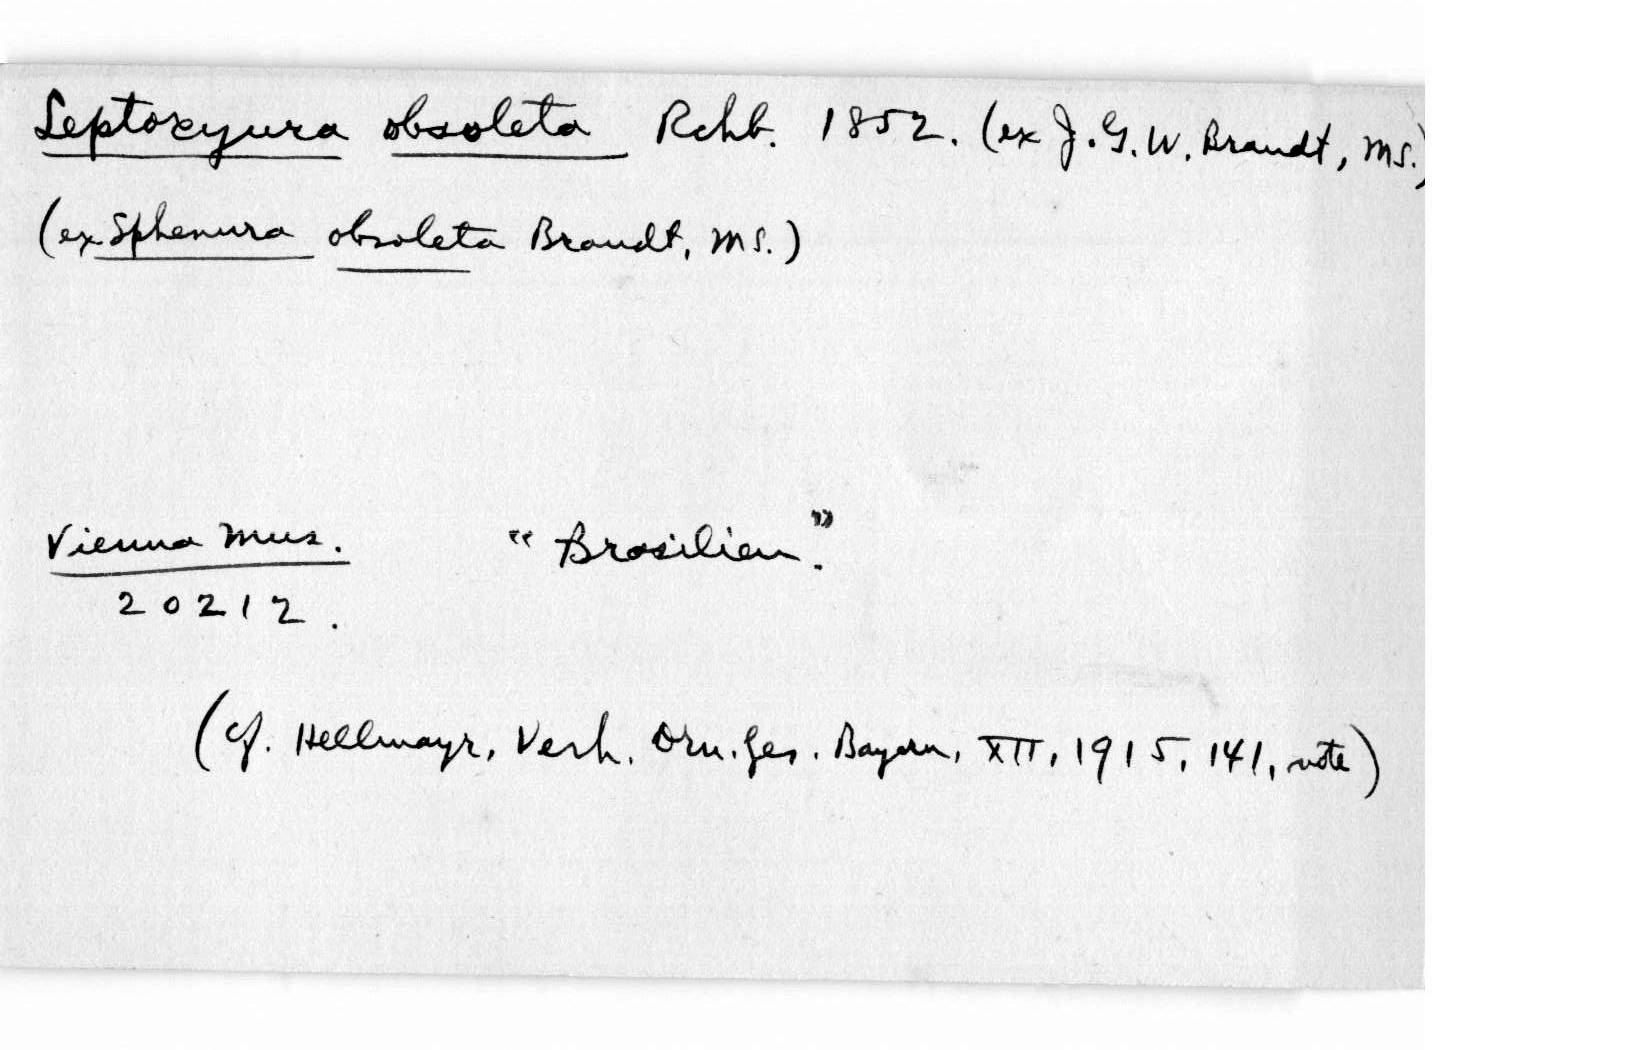 Leptoxyura obsoleta Rchb. 1852. (ex J.G.W. Brandt, MS.)
(ex Sphenura obsoleta Brandt, MS.)
Vienna Mus. "Brasilien."
20212.
(cf. Hellmayr, Verh. Orn. Ges. Bayern, XII, 1915, 141, note)